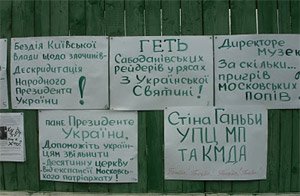 Безділ Київської
Влади щодо злочинів-
Дескридитація
Народного
Президента
України !
ГЕТЬ
Сабоданівських
рейдерів у рясах
З Української
Святині !
Директоре Музею
За скільки...
пригрів
московських
попів
пане Президенте
України,
Допоможіть україн-
цям звільнити
"Десятинну церкву"
від експансії Московсь-
кого патріархату !
Стіна Ганьби
УПЦ МП
ТА КМДА